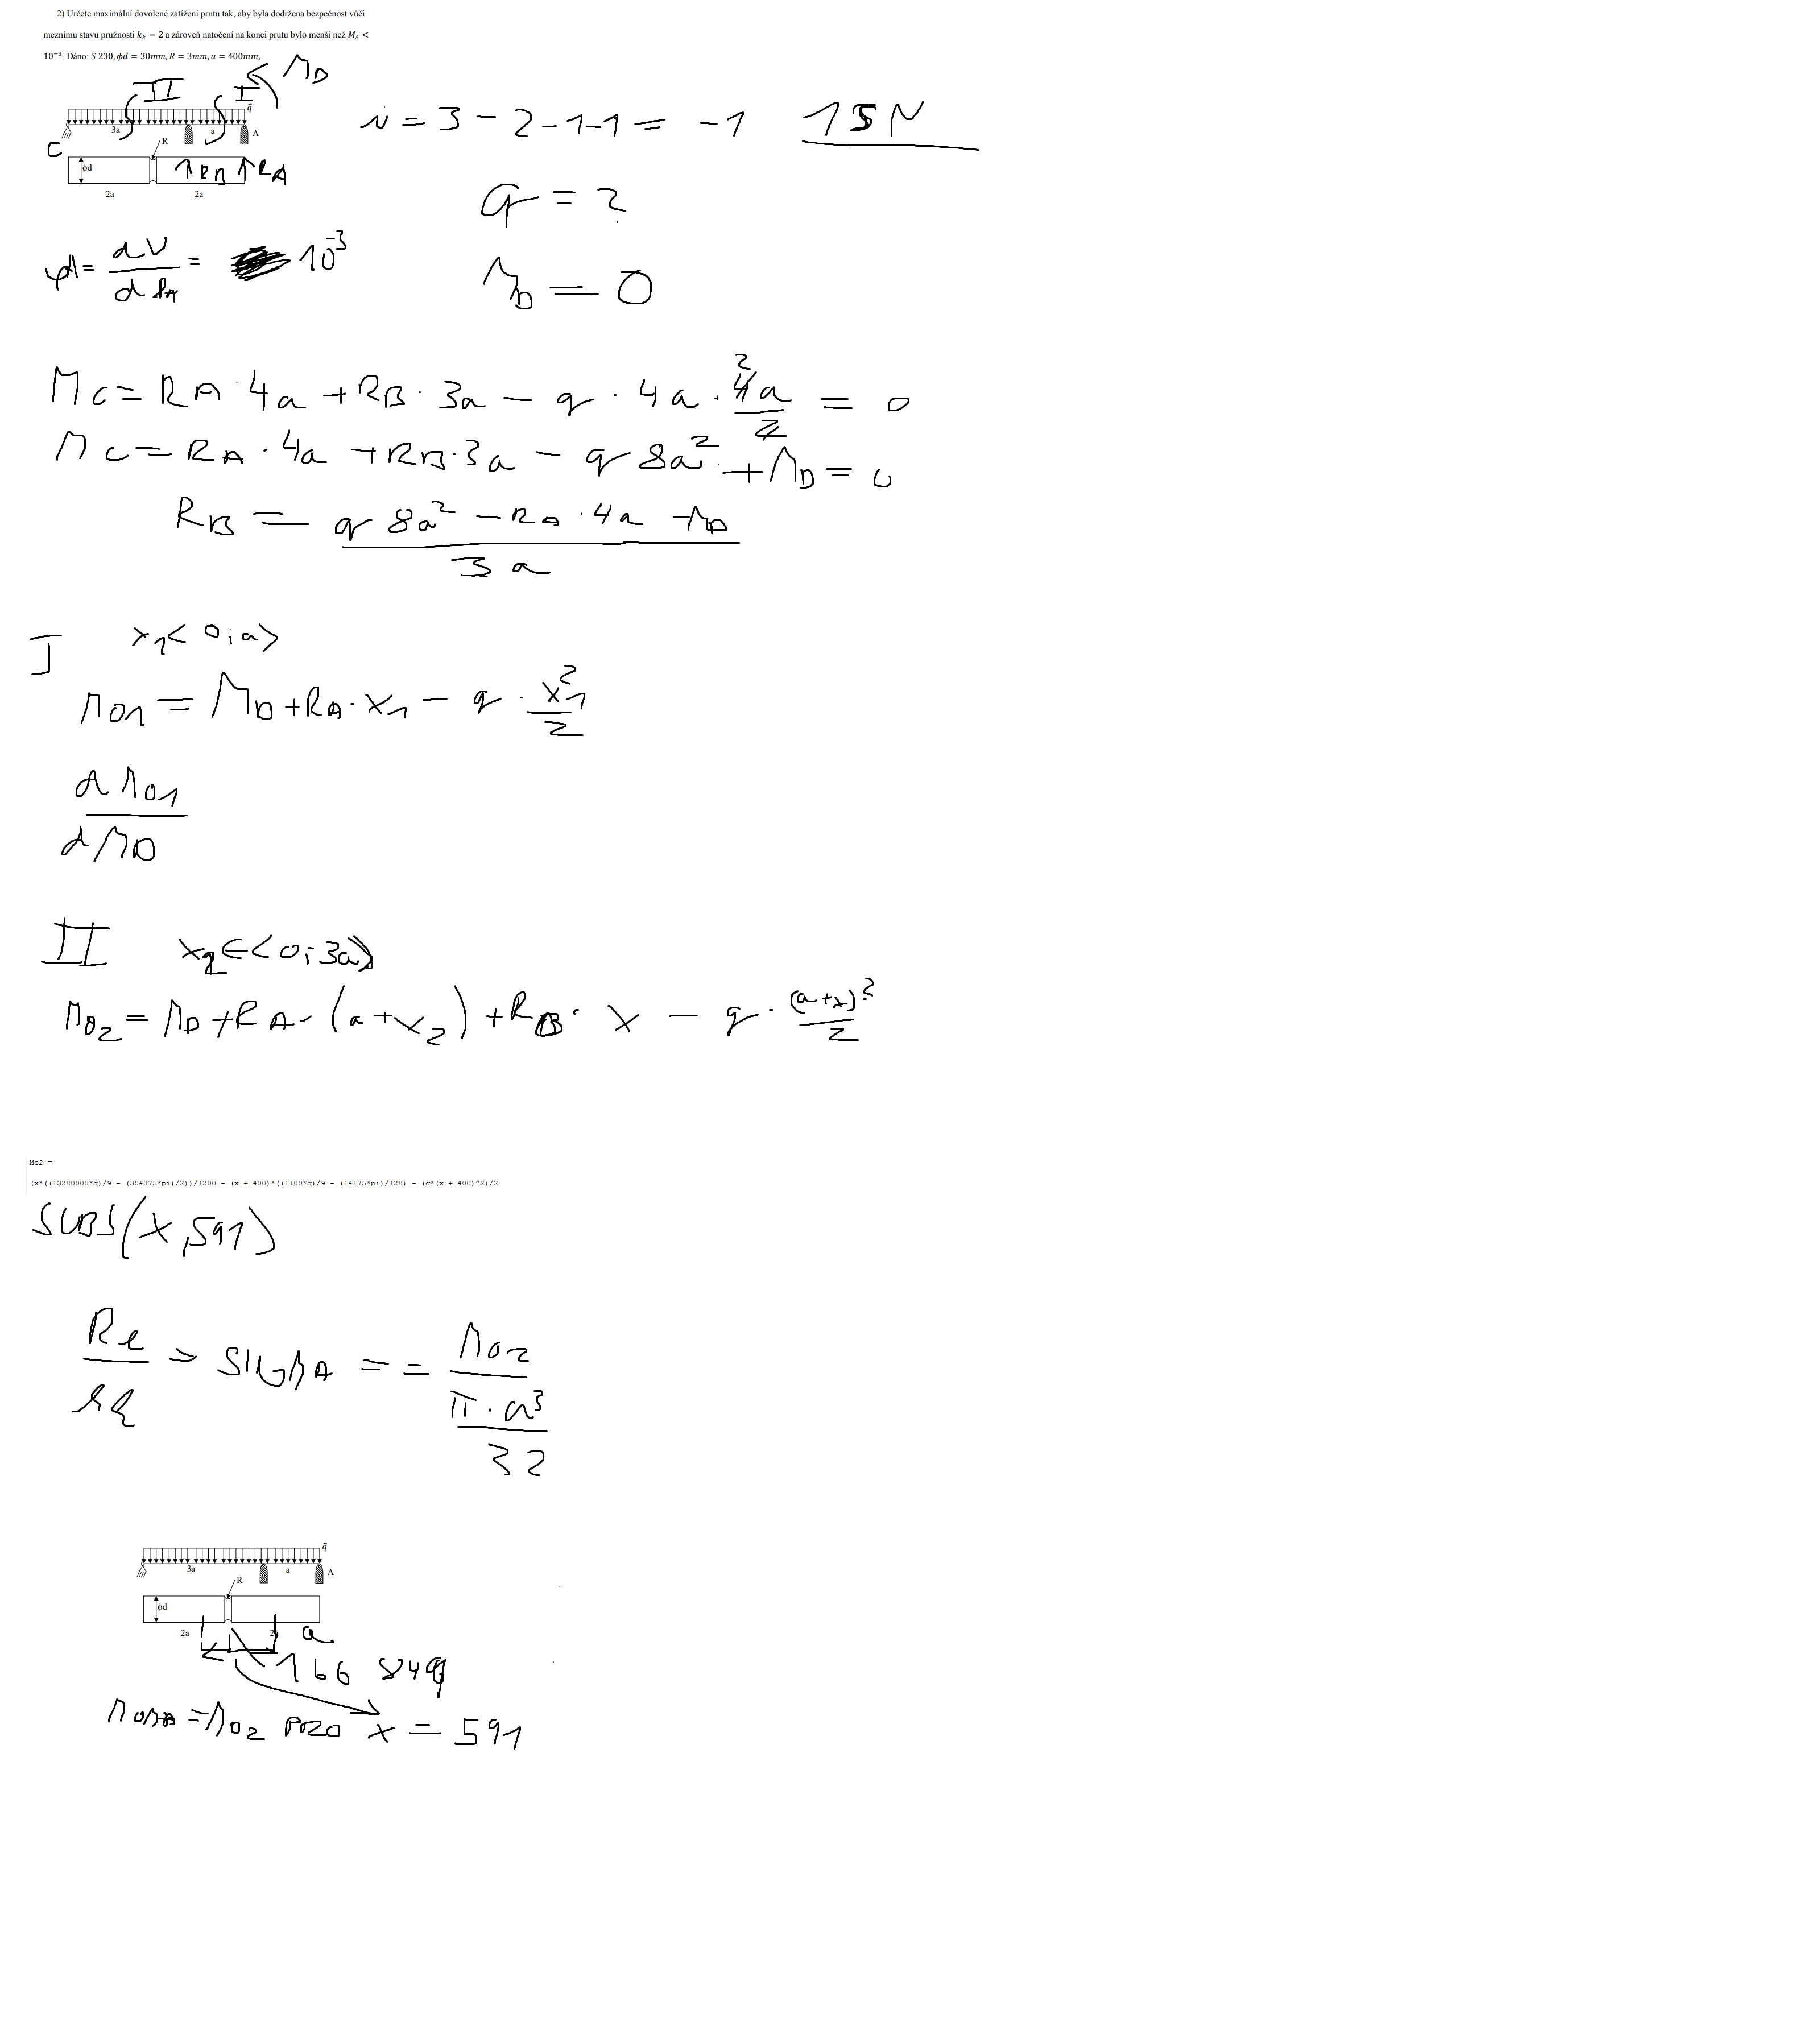 2) Určete maximální dovolené zatížení prutu tak, aby byla dodržena bezpečnost vůči
meznímu stavu pružnosti k_k = 2 a zároveň natočení na konci prutu bylo menší než M_A <
10^-3. Dáno: S 230, ϕd = 30mm, R = 3mm, a = 400mm,
M_D
II I
q
3a a A
C
R
ϕd
R_B R_A
2a 2a
n = 3 - 2 - 1 - 1 = -1 1SN
q = ?
φA = dU / dR_A = 10^-3
M_D = 0
M_C = R_A · 4a + R_B · 3a - q · 4a · 4a/2 = 0
2
M_C = R_A · 4a + R_B · 3a - q 8a^2 + M_D = 0
R_B = (q 8a^2 - R_A · 4a - M_D) / 3a
I x_1 < 0; a >
M_O1 = M_D + R_A · x_1 - q · x_1^2/2
dM_O1 / dM_D
II x_2 ∈ < 0; 3a >
M_O2 = M_D + R_A · (a + x_2) + R_B · x - q · (a+x)^2/2
Mo2 =
(x*((13280000*q)/9 - (354375*pi)/2))/1200 - (x + 400)*((1100*q)/9 - (14175*pi)/128) - (q*(x + 400)^2)/2
SUBS(X,591)
Re / kk = SIGMA == M_O2 / (π · d^3 / 32)
q
3a a A
R
ϕd
2a a
M_OMA = M_O2 PRO x = 591